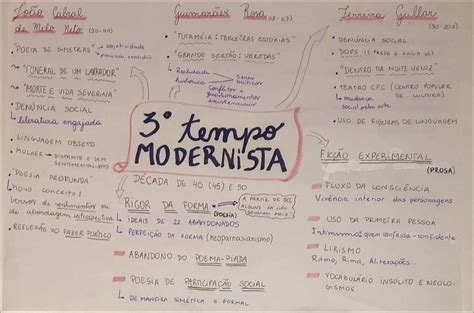 João Cabral
de Melo Neto (20-99)
• "POETA DE SIMETRIAS" → objetividade
• precisão, exatidão
• "FUNERAL DE UM LABRADOR"
• "MORTE E VIDA SEVERINA"
• DENÚNCIA SOCIAL
↳ literatura engajada
• LINGUAGEM OBJETO
• MULHER → DISTANTE E SEM
SENTIMENTALISMO
• "POESIA PROFUNDA"
↳ NOVO CONCEITO:
versos de sentimentos ou
de abordagem introspectiva
• REFLEXÃO DO FAZER POÉTICO
Guimarães Rosa (08-67)
• "TUTAMÉIA: TERCEIRAS ESTÓRIAS"
• "GRANDE SERTÃO: VEREDAS"
Realidade
histórica
Conflitos e
questionamentos
existenciais
3° tempo
MODERNISTA
DÉCADA DE 40 (45) E 50
RIGOR DA FORMA (POESIA)
A PARTIR DE 50,
ALGUNS JÁ NÃO
SEGUIAM MAIS
↳ IDEAIS DE 22 ABANDONADOS
↳ PERFEIÇÃO DA FORMA (neoparnasianismo)
ABANDONO DO POEMA-PIADA
POESIA DE PARTICIPAÇÃO SOCIAL
↳ DE MANEIRA SIMÉTICA E FORMAL
Ferreira Gullar
(30-2016)
• DENÚNCIA SOCIAL
• DOPS (É PRESO E EXILA-SE)
• "DENTRO DA NOITE VELOZ"
• TEATRO CPC (CENTRO POPULAR
DE CULTURA)
↳ mudança
social pela arte
• USO DE FIGURAS DE LINGUAGEM
FICÇÃO EXPERIMENTAL
(PROSA)
FLUXO DA CONSCIÊNCIA
Vivência interior das personagens
USO DA PRIMEIRA PESSOA
Intimismo; quem confessa-confidente
LIRISMO
Ritmo, Rima, Aliterações...
VOCABULÁRIO INSÓLITO E NEOLO-
GISMOS